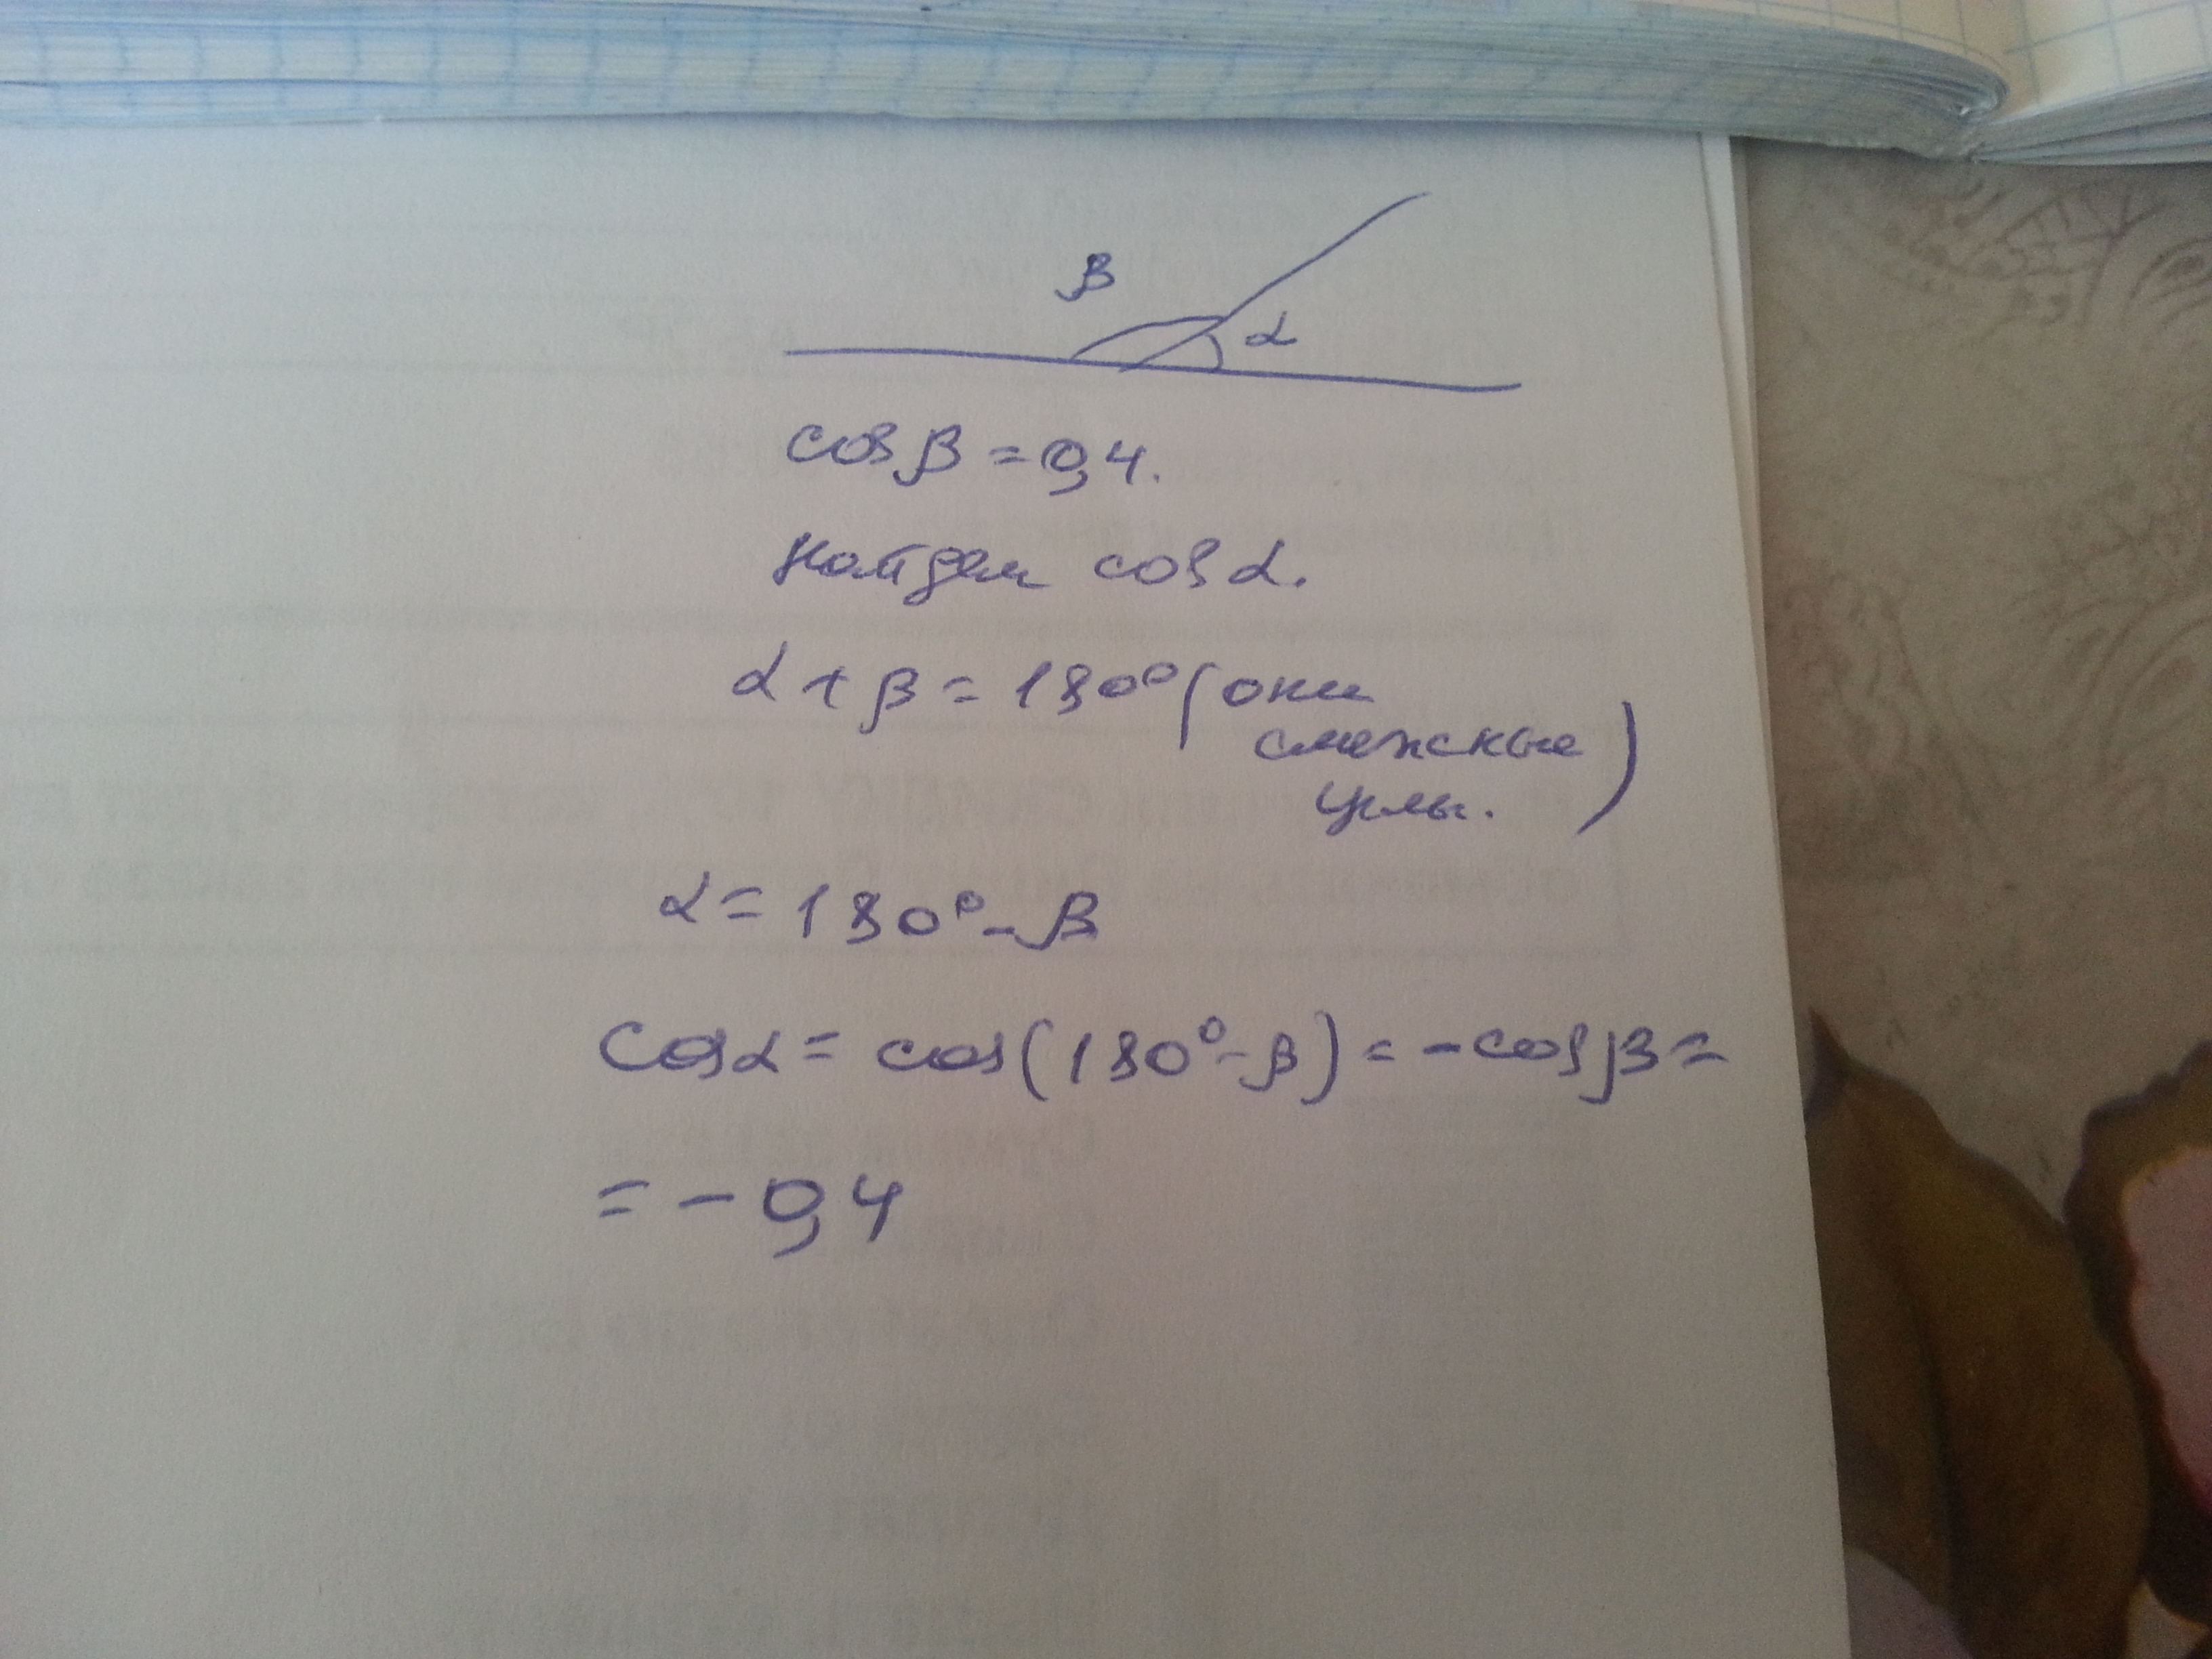 β
α
cosβ = 0,4.
Найдем cosα.
α + β = 180° (они
смежные
углы.)
α = 180° - β
Cosα = cos(180° - β) = - cosβ =
= - 0,4